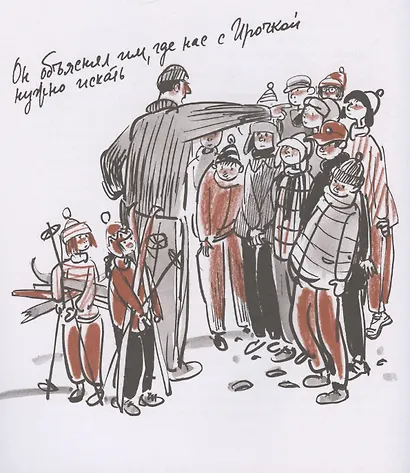 Он объяснял им, где нас с Ирочкой
нужно искать